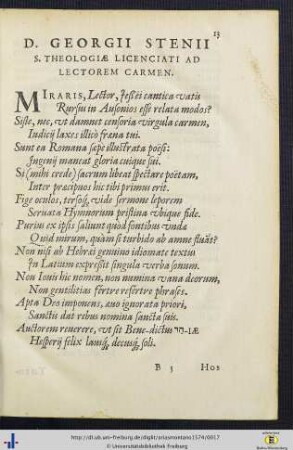 13
D. GEORGII STENII
S. THEOLOGIÆ LICENCIATI AD
LECTOREM CARMEN.
MIRARIS, Lector, Iessei cantica vatis
Rursus in Ausonios esse relata modos?
Siste, nec, vt damnet censoria virgula carmen,
Iudicij laxes illico fræna tui.
Sunt ea Romana sæpe illustrata poësi:
Ingenij maneat gloria cuique sui.
Si (mihi crede) sacrum libeat spectare poëtam,
Inter præcipuos hic tibi primus erit.
Fige oculos, tersosq́, vide sermone leporem
Seruata Hymnorum pristina vbique fide.
Purius ex ipsis saliunt quòd fontibus vnda
Quid mirum, quàm si turbido ab amne fluāt?
Non nisi ab Hebræi genuino idiomate textus
In Latium expressit singula verba sonum.
Non Iouis hic nomen, non numina vana deorum,
Non gentilitias fertre refertre phrases.
Apta Deo imponens, æuo ignorata priori,
Sanctis dat rebus nomina sancta suis.
Auctorem reuerere, vt sit Bene-dictus הר-IÆ
Hesperij felix lausq́, decusq́, soli.
B 3 Hos
http://dl.ub.uni-freiburg.de/diglit/ariasmontano1574/0017
© Universitätsbibliothek Freiburg